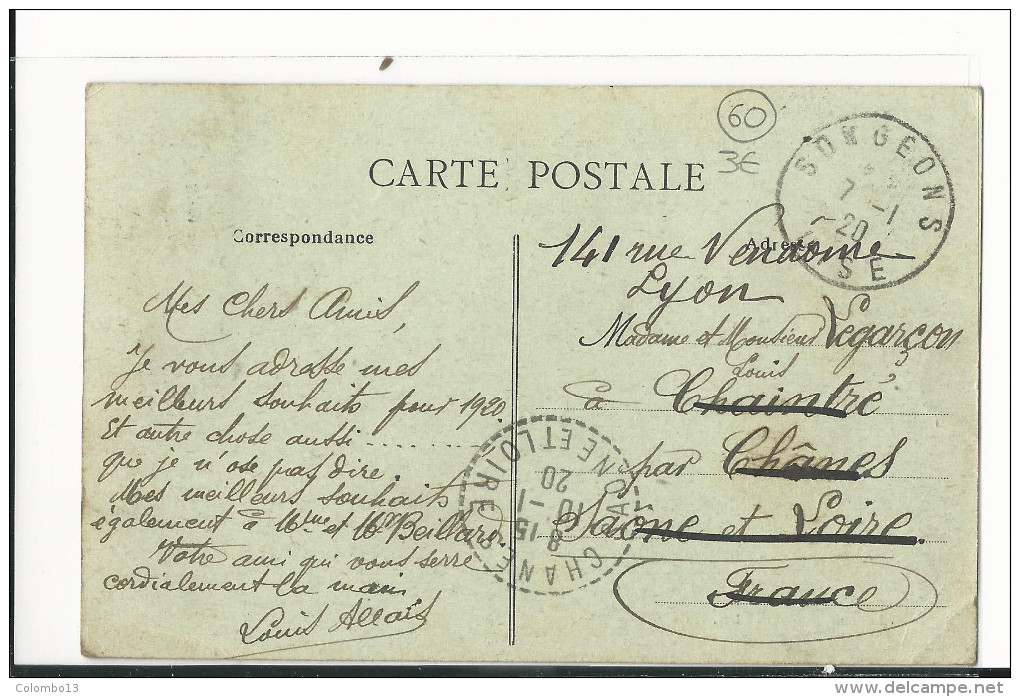 60
3€
CARTE POSTALE
SONGEONS
7 -1
20
SE
Correspondance
Adresse
141 rue Vendome
Lyon
Mes Chers Amis,
Madame et Monsieur Legarçon
Louis
Je vous adresse mes
meilleurs souhaits pour 1920.
à Chaintré
Et autre chose aussi ..........
que je n'ose pas dire.
par Chânes
Mes meilleurs souhaits
également à Mme et Mr Beillard.
Saone et Loire.
Votre ami qui vous serre
cordialement la main
France
Louis Allais
CHANES
SAONE ET LOIRE
8 15
10 -1
20
Colombo13
delcampe.net